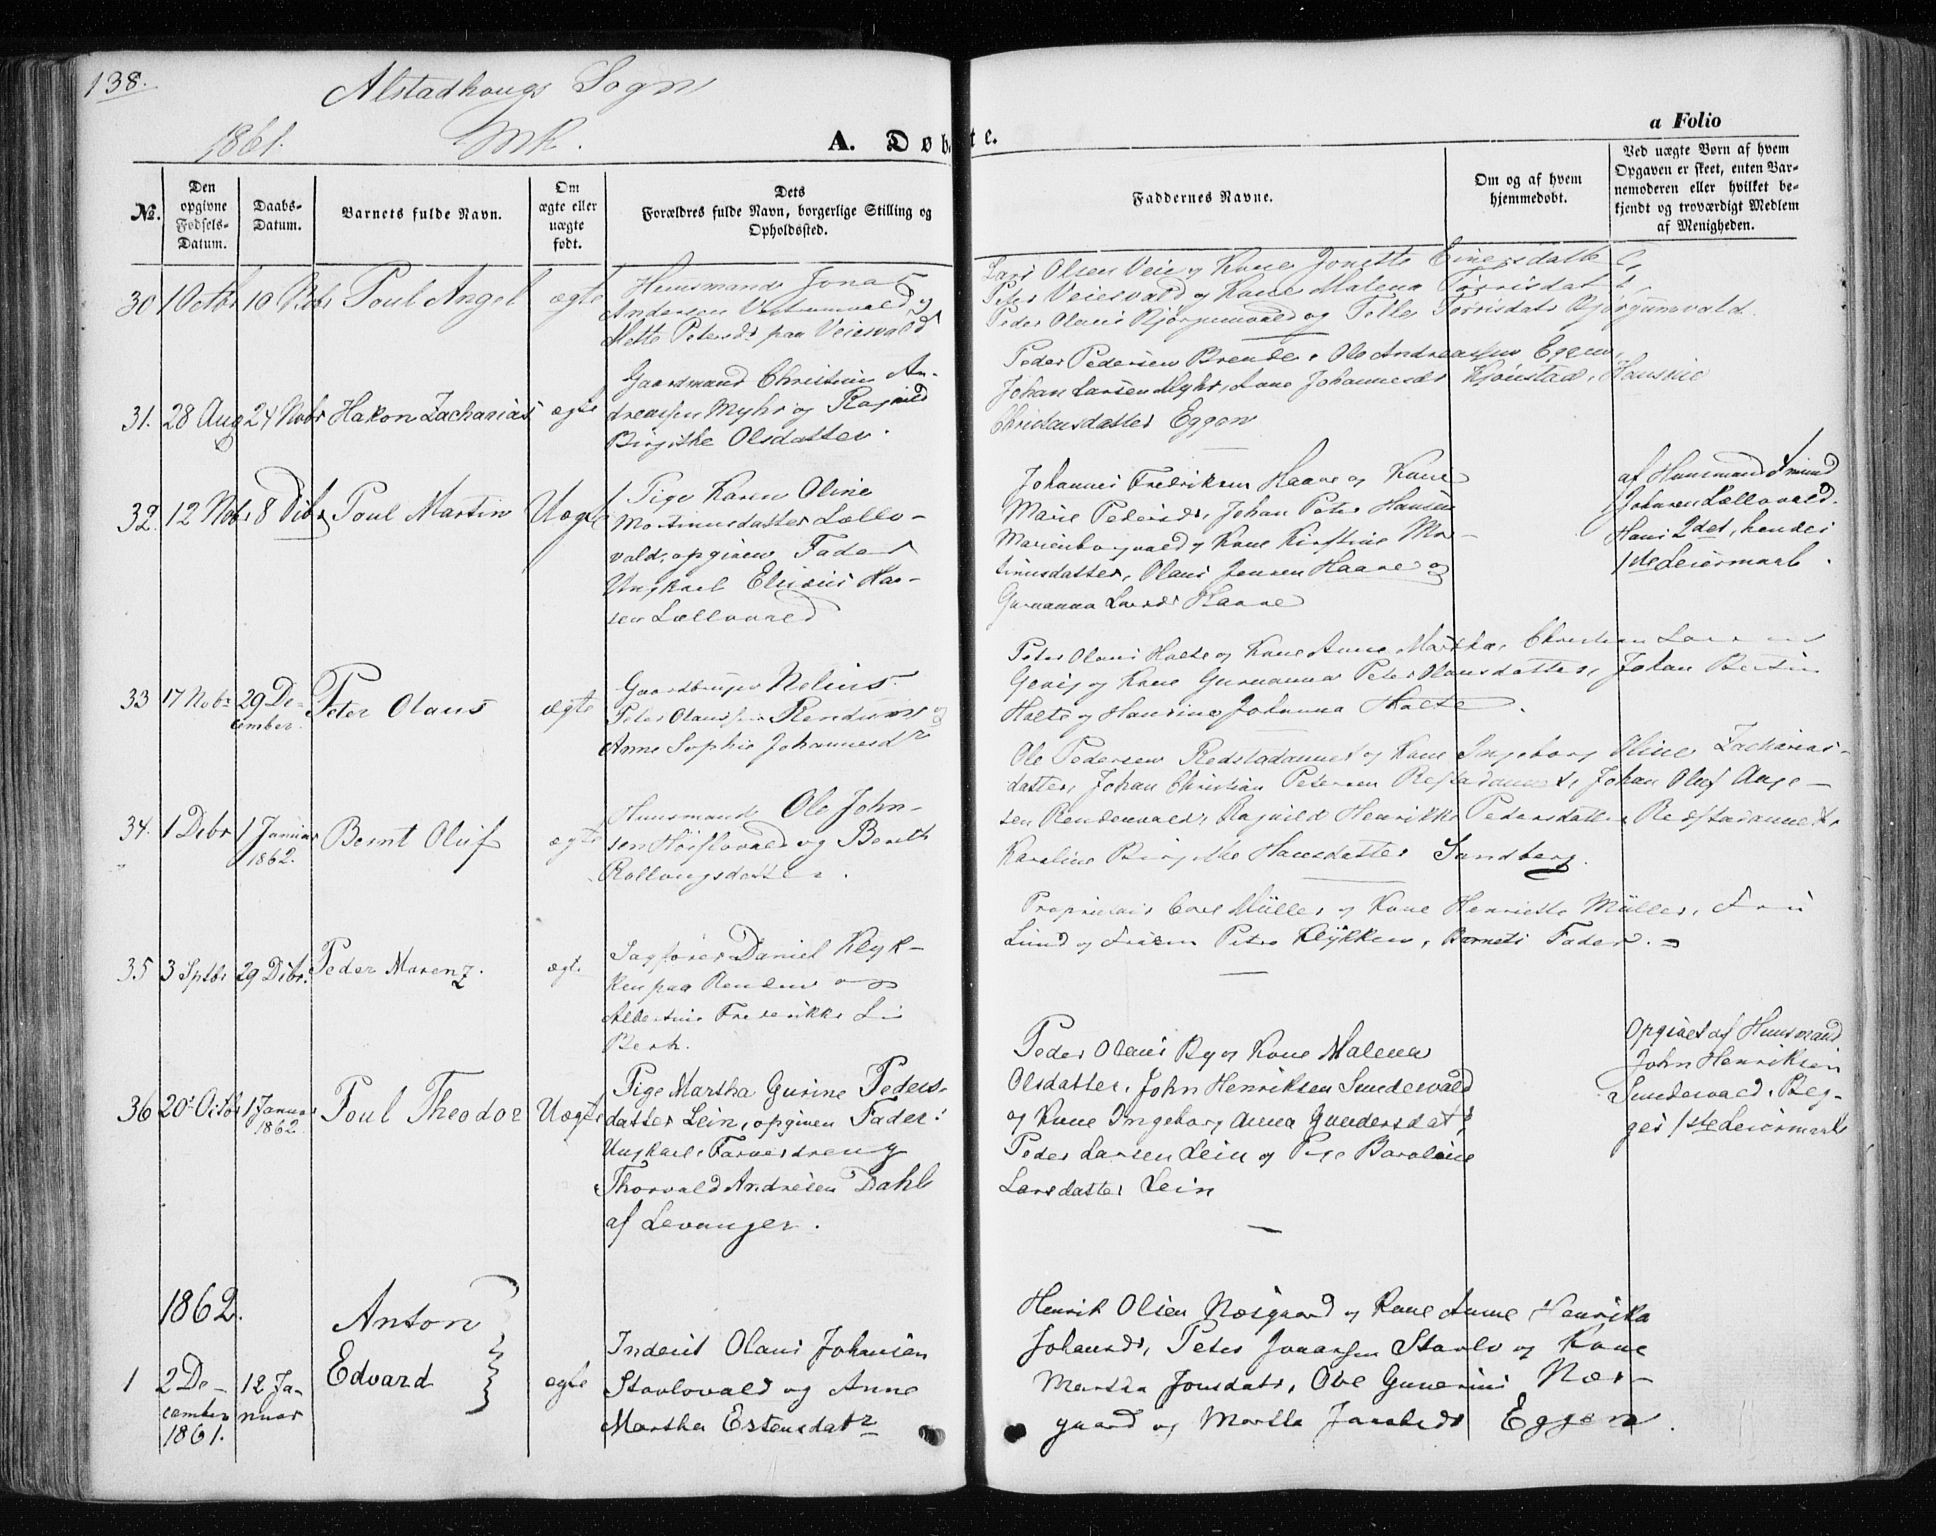 138.
Alstadhougs Sogn
1861.
MK.
A. Døbte.
a Folio
No.
Den opgivne Fødsels-Datum.
Daabs-Datum.
Barnets fulde Navn.
Om ægte eller uægte født.
Dets Forældres fulde Navn, borgerlige Stilling og Opholdssted.
Faddernes Navne.
Om og af hvem hjemmedøbt.
Ved uægte Børn af hvem Opgaven er skeet, enten Barnemoderen eller hvilket bekjendt og troværdigt Medlem af Menigheden.
30 1 Octbr 10 Nobr Poul Angel ægte
Huusmand Jonas
Andersen
Mette Petersdr paa Veiesvald
Lars Olsen Veie og Kone Jonette Einersdatter
Peter Veiesvald og Kone Malena Tørrisdatr,
Peder Olaus Bjørgumvald og Tørrisdatr Bjørgumsvald.
31. 28 Aug 24 Nobr Hakon Zacharias ægte
Gaardmand Christian An-
dreassen Myhr og Ragnild
Birgithe Olsdatter.
Peder Pedersen Brende, Ole Andreassen Eggen,
Johan Larsen Myhr, Lone Johannesdr Kjønstad, Hansine
Christensdatter Eggen
32. 12 Nobr 8 Dcbr Poul Martin Uægte
Pige Karen Oline
Mortinusdatter Lello-
vald, opgiven Fader
Ungkarl Elisæus Han-
sen Lællovald
Johannes Fredriksen Haave og Kone
Marie Pedersdr, Johan Peter Hansen
Marienborgvald og Kone Kirstine Mor-
tinusdatter, Olaus Jensen Haave og
Gurianna Larsdr Haave
af Huusmand
Johnsen Lællovald.
Hans 2det, hendes
1ste Leiermaal.
33 17 Nobr 29 De-
cember. Peter Olaus ægte
Gaardbruger Nelius
Peter Olaussen Rendum og
Anne Sophie Johannesdr
Peter Olaus Halte og Kone Anne Martha, Christian Larsen
Geving og Kone Gurianna Peter Olausdatter, Johan Bertin
Halte og Hansine Johanna Halte.
34. 1 Dcbr 1 Januar
1862. Bernt Oluf ægte
Huusmand Ole John-
sen Høislovald og Bereth
Rollaugsdatter.
Ole Pedersen Redstadannet og Kone Ingeborg Zacharias-
datter, Johan Christian Petersen Restadannet, Johan Oluf Auge-
sen Rendenvald, Ragnild Henrikke Pedersdatter Redstadannet,
Karoline Birgithe Hansdatter Sundberg.
35 3 Sptbr 29 Dcbr. Peder Marenz. ægte
Sagfører Daniel Klyk-
ken paa Renden og
Albertine Frederikke
Berk.
Proprietair Carl Müller og Kone Henriette Müller, Fru
Lund og Frøken Petra Klykken, Barnets Fader.
36 20 Octbr 1 Januar
1862. Poul Theodor Uægte
Pige Martha Gurine Peders-
datter Lein, opgiven Fader:
Ungkarl, Farverdreng
Thorvald Andresen Dahl
af Levanger.
Peder Olaus By og Kone Malena
Olsdatter, John Henriksen Sundervald
og Kone Ingeborg Anna Gundersdatr,
Peder Larsen Lein og Pige Baroline
Larsdatter Lein
Opgivet af Huusmand
John Henriksen
Sundervald. Beg-
ges 1ste Leiermaal
1862.
1 2 De-
cember
1861. 12 Ja-
nuar
Anton
Edvard
ægte
Inderst Olaus Johansen
Stavlovald og Anne
Martha Estensdatr
Henrik Olsen Næsgaard og Kone Anne Henrika
Johansdr, Peter Jonassen Stavlo og Kone
Martha Jonsdatr, Ove Gunerius Næs-
gaard og Martha Jacobsdr Eggen.